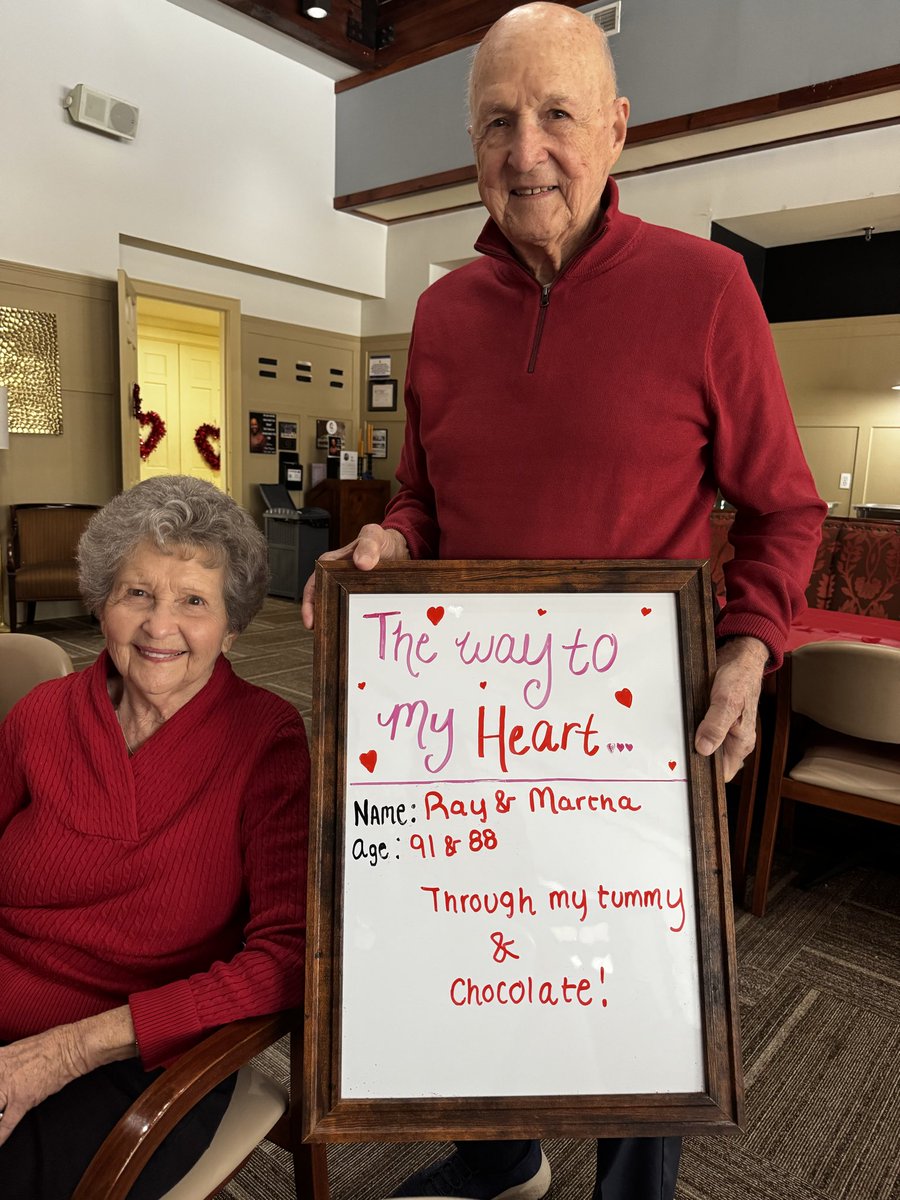 The way to
my Heart...
Name: Ray & Martha
Age: 91 & 88
Through my tummy
&
Chocolate!